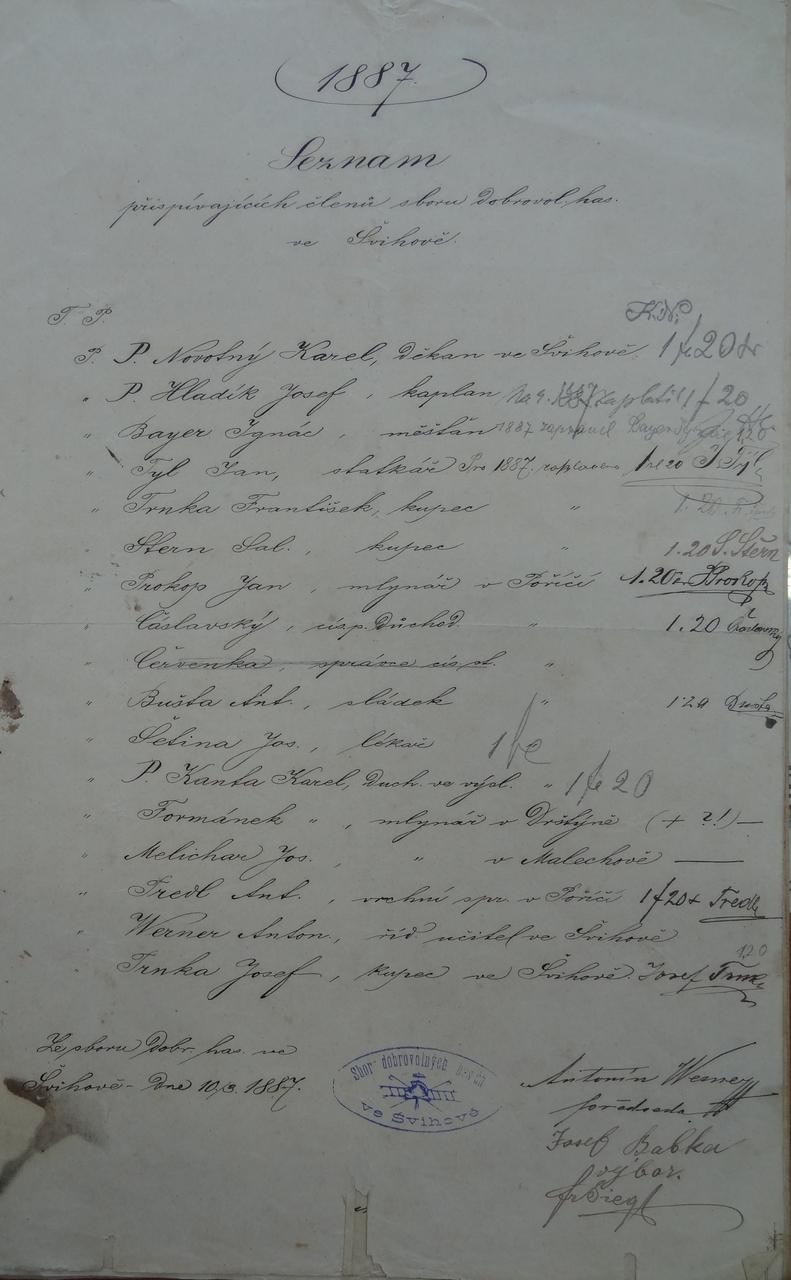 1887.
Seznam
přispívajících členů sboru dobrovol. has.
ve Švihově.
T. P.
P. P. Novotný Karel, děkan ve Švihově 1 f 20 kr
" P. Hladík Josef, kaplan zaplatil 1 f 20
" Bayer Ignác, měšťan 1887 1.20
" Tyl Jan, statkář Pro 1887. zaplaceno 1 zl 20 J. Týl
" Trnka František, kupec " 1.20
" Stern Sal., kupec " 1.20 S. Štern
" Prokop Jan, mlynář v Poříčí 1.20 J Prokop
" Čáslavský, cís. p. Důchod. " 1.20
" Červenka, správce cís. st. "
" Bušta Ant., sládek " 1.20
" Šetina Jos., lékař 1 f
" P. Kanta Karel, Duch. ve výsl. " 1 f 20
" Formánek " , mlynář v Drštýně (+ ?!) —
" Melichar Jos., " v Malechově —
" Tredl Ant., vrchní spr. v Poříčí 1 f 20 Tredl
" Werner Anton., říd. učitel ve Švihově
Trnka Josef, kupec ve Švihově. Josef Trnka 120
Ze sboru dobr. has. ve
Švihově - dne 10/3. 1887.
Sbor dobrovolných hasičů
ve Švihově
Antonín Werner
předseda
Josef Babka
výbor.
Fr Siegl